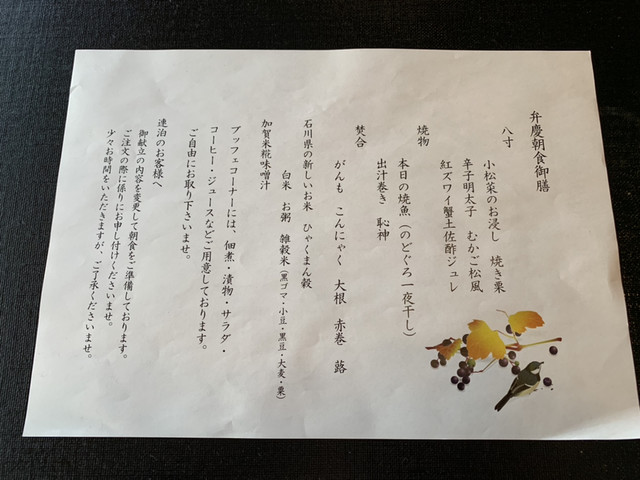 弁慶朝食御膳
八寸
小松菜のお浸し 焼き栗
辛子明太子 むかご松風
紅ズワイ蟹土佐酢ジュレ
焼物
本日の焼魚(のどぐろ一夜干し)
出汁巻き 恥神
焚合
がんも こんにゃく 大根 赤巻 蕗
石川県の新しいお米 ひゃくまん穀
白米 お粥 雑穀米(黒ゴマ・小豆・黒豆・大麦・粟)
加賀米糀味噌汁
ブッフェコーナーには、佃煮・漬物・サラダ・
コーヒー・ジュースなどご用意しております。
ご自由にお取り下さいませ。
連泊のお客様へ
御献立の内容を変更して朝食をご準備しております。
ご注文の際に係りにお申し付けくださいませ。
少々お時間をいただきますが、ご了承くださいませ。